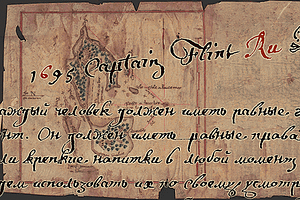 1695 Captain Flint Ru
каждый человек должен иметь равные
нт. Он должен иметь равные права
ли крепкие напитки в любой момент
ем использовать их по своему усмотр